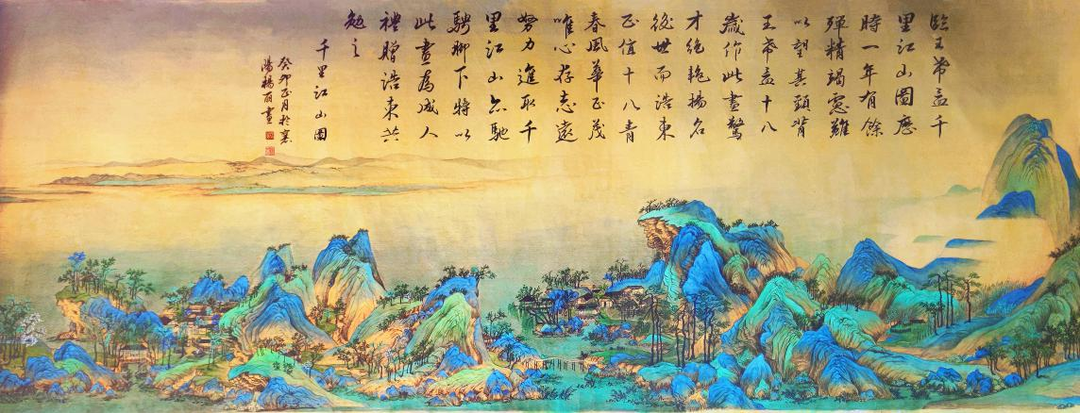 臨王希孟千
里江山圖歷
時一年有餘
殫精竭慮難
以望其項背
王希孟十八
歲作此畫驚
才絕艷揚名
後世而浩東
正值十八青
春風華正茂
唯心存志遠
努力進取千
里江山亦馳
騁腳下特以
此畫為成人
禮贈浩東共
勉之
千里江山圖
癸卯正月於襄
陽楊丽畫